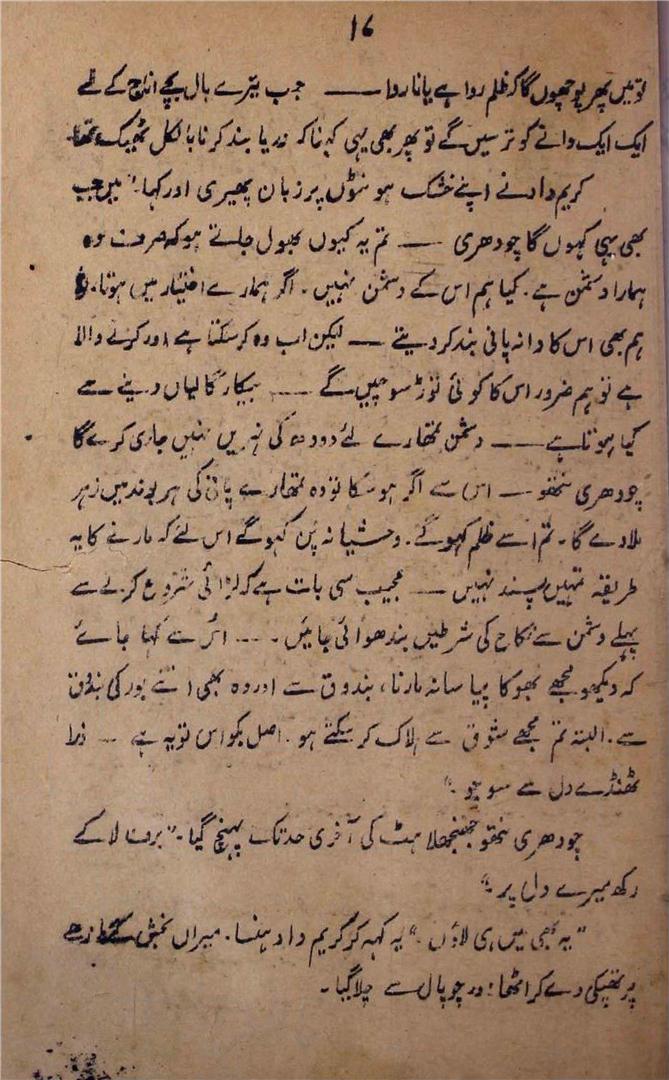 ۱۶
تو میں پھر پوچھوں گا کہ ظلم روا ہے یا ناروا ـــــ جب تیرے بال بچے اناج کے لئے
ایک ایک دانے کو ترسیں گے تو پھر بھی یہی کہنا کہ دریا بند کرنا بالکل ٹھیک تھا۔
کریم داد نے اپنے خشک ہونٹوں پر زبان پھیری اور کہا۔" میں جب
بھی یہی کہوں گا چودھری ــــ تم یہ کیوں بھول جاتے ہو کہ صرف وہ
ہمارا دشمن ہے۔ کیا ہم اس کے دشمن نہیں۔ اگر ہمارے اختیار میں ہوتا۔ تو
ہم بھی اس کا دانہ پانی بند کر دیتے ــــ لیکن اب وہ کر سکتا ہے اور کرنے والا
ہے تو ہم ضرور اس کا کوئی توڑ سوچیں گے ــــ بیکار گالیاں دینے سے
کیا ہوتا ہے ــــ دشمن تمھارے لئے دودھ کی نہریں نہیں جاری کرے گا
چودھری نتھو ــــ اس سے اگر ہو سکا تو وہ تمھارے پانی کی ہر بوند میں زہر
ملا دے گا۔ تم اسے ظلم کہو گے۔ وحشیانہ پن کہو گے اس لئے کہ مارنے کا یہ
طریقہ تمہیں پسند نہیں ــــ عجیب سی بات ہے کہ لڑائی شروع کرنے سے
پہلے دشمن سے نکاح کی شرطیں بندھوائی جائیں۔ ــــ اس سے کہا جائے
کہ دیکھو مجھے بھوکا پیاسا نہ مارنا، بندوق سے اور وہ بھی اتنے بور کی بندوق
سے۔ البتہ تم مجھے شوق سے ہلاک کر سکتے ہو۔ اصل بکواس تو یہ ہے ــــ ذرا
ٹھنڈے دل سے سوچو۔"
چودھری نتھو جھنجھلاہٹ کی آخری حد تک پہنچ گیا۔" برف لا کے
رکھ میرے دل پر۔"
"یہ بھی میں ہی لاؤں۔" یہ کہہ کر کریم داد ہنسا۔ میراں بخش کے کاندھے
پر تھپکی دے کر اٹھا اور چوپال سے چلا گیا۔